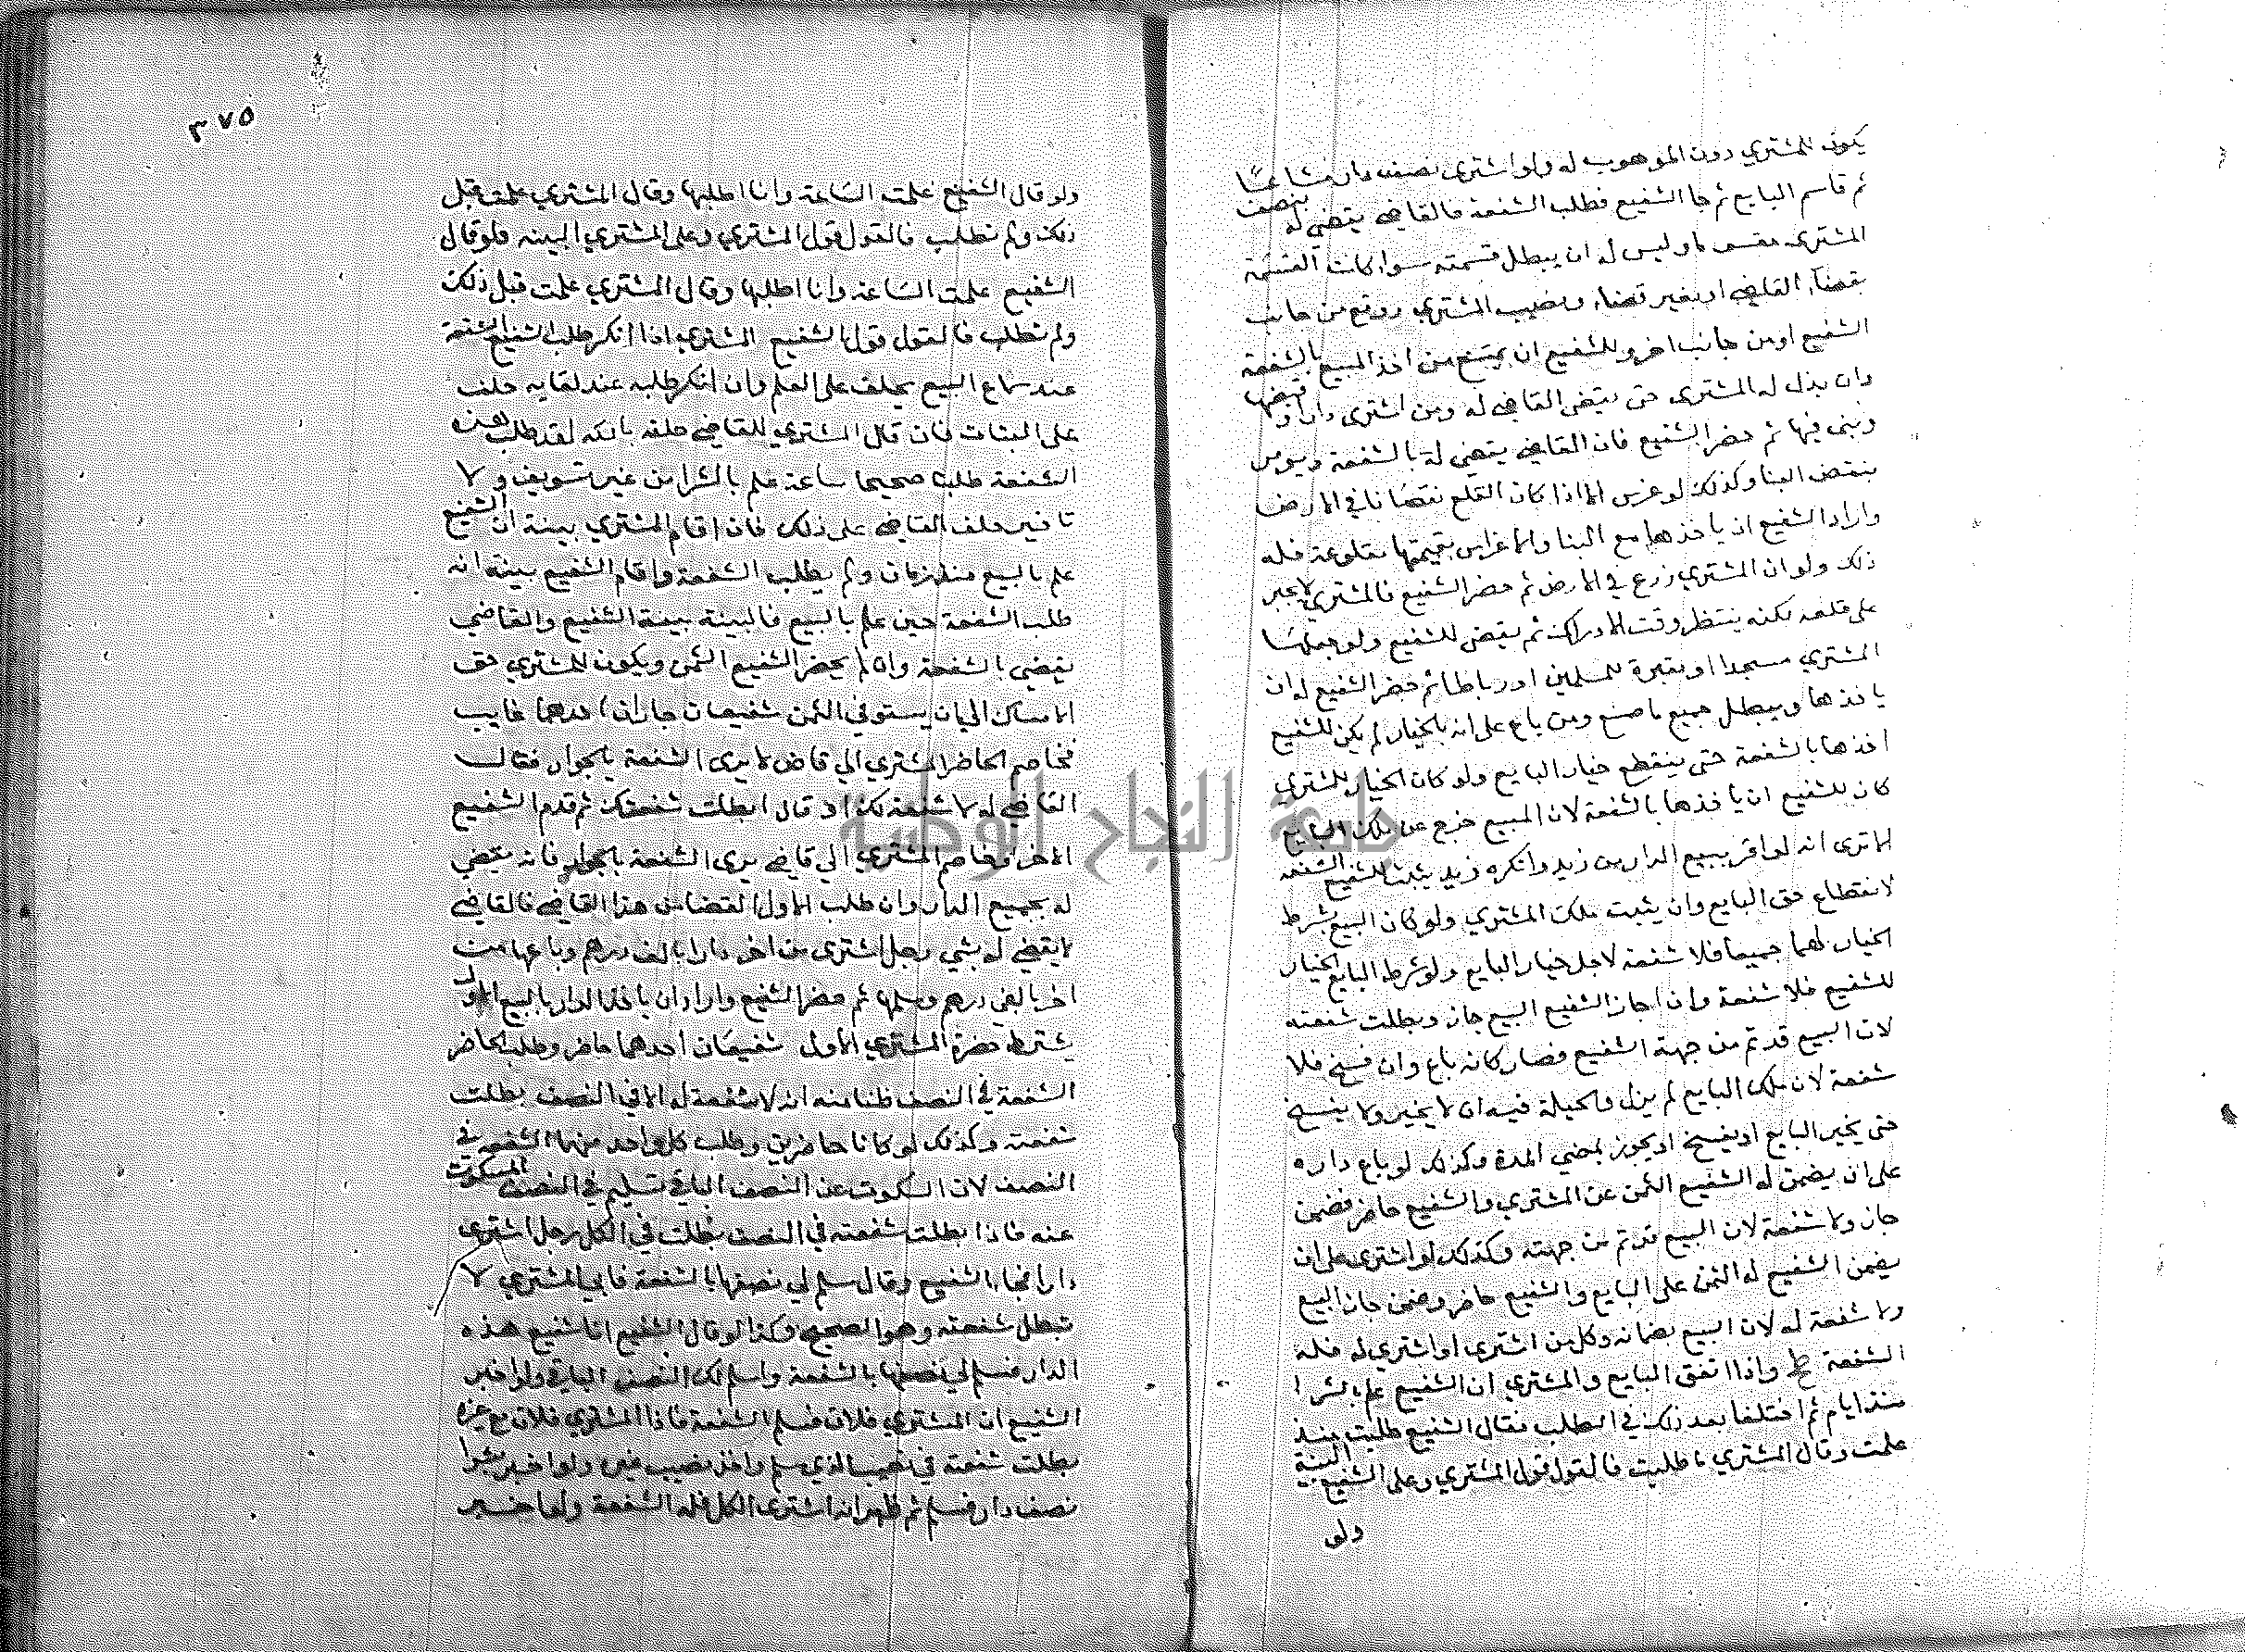 يكون للمشتري دون الموهوب له ولو اشترى نصف دار مشاعا
ثم قاسم البايع ثم جا الشفيع فطلب الشفعة فالقاضي يقضي له بنصف
المشتري مقسوما وليس له ان يبطل قسمته سوا كانت القسمة
بقضاء القاضي او بغير قضاء ونصيب المشتري وقع من جانب
الشفيع او من جانب اخر وللشفيع ان يمتنع من اخذ المبيع بالشفعة
وان بذل له المشتري حتى يقضي القاضي له ومن اشترى دارا وقبضها
وبنى فيها ثم حضر الشفيع فان القاضي يقضي له بالشفعة ويومر
بنقض البنا وكذلك لو غرس الا اذا كان القلع نقصانا في الارض
واراد الشفيع ان ياخذها مع البنا والاغراس بقيمتها مقلوعة فله
ذلك ولو ان المشتري زرع في الارض ثم حضر الشفيع فالمشتري لا يجبر
على قلعه لكنه ينتظر وقت الادراك ثم يقضي للشفيع ولو جعلها
المشتري مسجدا او مقبرة للمسلمين او رباطا ثم حضر الشفيع له ان
ياخذها ويبطل جميع ما صنع ومن باع على انه بالخيار لم يكن للشفيع
اخذها بالشفعة حتى ينقطع خيار البايع ولو كان الخيار للمشتري
كان للشفيع ان ياخذها بالشفعة لان المبيع خرج عن ملك البايع
الا ترى انه لو اقر ببيع الدار من زيد وانكره زيد يثبت للشفيع الشفعة
لانقطاع حق البايع وان يثبت ملك المشتري ولو كان البيع بشرط
الخيار لهما جميعا فلا شفعة لاجل خيار البايع ولو شرط البايع الخيار
للشفيع فلا شفعة وان اجاز الشفيع البيع جاز وبطلت شفعته
لان البيع قد تم من جهة الشفيع فصار كانه باع وان فسخ فلا
شفعة لان ملك البايع لم يزل والحيلة فيه ان لا يخير ولا يفسخ
حتى يخير البايع او يفسخ او يجوز بمضي المدة وكذلك لو باع داره
على ان يضمن له الشفيع الثمن عن المشتري والشفيع حاضر فضمن
جاز ولا شفعة لان البيع قد تم من جهته وكذلك لو اشترى على ان
يضمن الشفيع له الثمن على البايع والشفيع حاضر وضمن جاز البيع
ولا شفعة له لان البيع بضمانه وكل من اشترى او اشتري له فله
الشفعة ط واذا اتفق البايع والمشتري ان الشفيع علم بالشرا
منذ ايام ثم اختلفا بعد ذلك في الطلب فقال الشفيع طلبت منذ
علمت وقال المشتري ما طلبت فالقول قول المشتري وعلى الشفيع البينة
ولو
٣٧٥
ولو قال الشفيع علمت الساعة وانا اطلبها وقال المشتري علمت قبل
ذلك ولم تطلب فالقول قول المشتري وعلى المشتري البينه فلو قال
الشفيع علمت الساعة وانا اطلبها وقال المشتري علمت قبل ذلك
ولم تطلب فالقول قول الشفيع المشتري اذا انكر طلب الشفيع الشفعة
عند سماع البيع يحلف على العلم وان انكر طلبه عند لقايه حلف
على البتات فان قال المشتري للقاضي حلفه بالله لقد طلب هذه
الشفعة طلبا صحيحا ساعة علم بالشرا من غير تسويف ولا
تاخير حلف القاضي على ذلك فان اقام المشتري بينة ان الشفيع
علم بالبيع منذ زمان ولم يطلب الشفعة واقام الشفيع بينة انه
طلب الشفعة حين علم بالبيع فالبينة بينة الشفيع والقاضي
يقضي بالشفعة وان لم يحضر الشفيع الثمن ويكون للمشتري حق
الامساك الى ان يستوفي الثمن شفيعان جاران احدهما غايب
فخاصم الحاضر المشتري الى قاض لا يرى الشفعة بالجوار فقال
القاضي له لا شفعة لك او قال ابطلت شفعتك ثم قدم الشفيع
الاخر فخاصم المشتري الى قاضي يرى الشفعة بالجوار فانه يقضي
له بجميع الدار وان طلب الاول القضا من هذا القاضي فالقاضي
لا يقضي له بشي رجل اشترى من اخر دارا بالف درهم وباعها من
اخر بالفي درهم وسلمها ثم حضر الشفيع واراد ان ياخذ الدار بالبيع الاول
يشترط حضرة المشتري الاول شفيعان احدهما حاضر وطلب الحاضر
الشفعة في النصف ظنا منه انه لا شفعة له الا في النصف بطلت
شفعته وكذلك لو كانا حاضرين وطلب كل واحد منهما الشفعة في
النصف لان السكوت عن النصف الباقي تسليم في النصف المسكوت
عنه فاذا بطلت شفعته في النصف بطلت في الكل رجل اشترى
دارا فجاء الشفيع وقال سلم لي نصفها بالشفعة فابى المشتري لا
تبطل شفعته وهو الصحيح وكذا لو قال الشفيع انا شفيع هذه
الدار فسلم لي نصفها بالشفعة واسلم لك النصف الباقي ولو اخبر
الشفيع ان المشتري فلان فسلم الشفعة فاذا المشتري فلان مع غيره
بطلت شفعته في نصيب الذي سلم واخذ نصيب غيره ولو اخبر بشرا
نصف دار فسلم ثم ظهر انه اشترى الكل فله الشفعة ولو اخبر
طبعة النجاح الوطنية